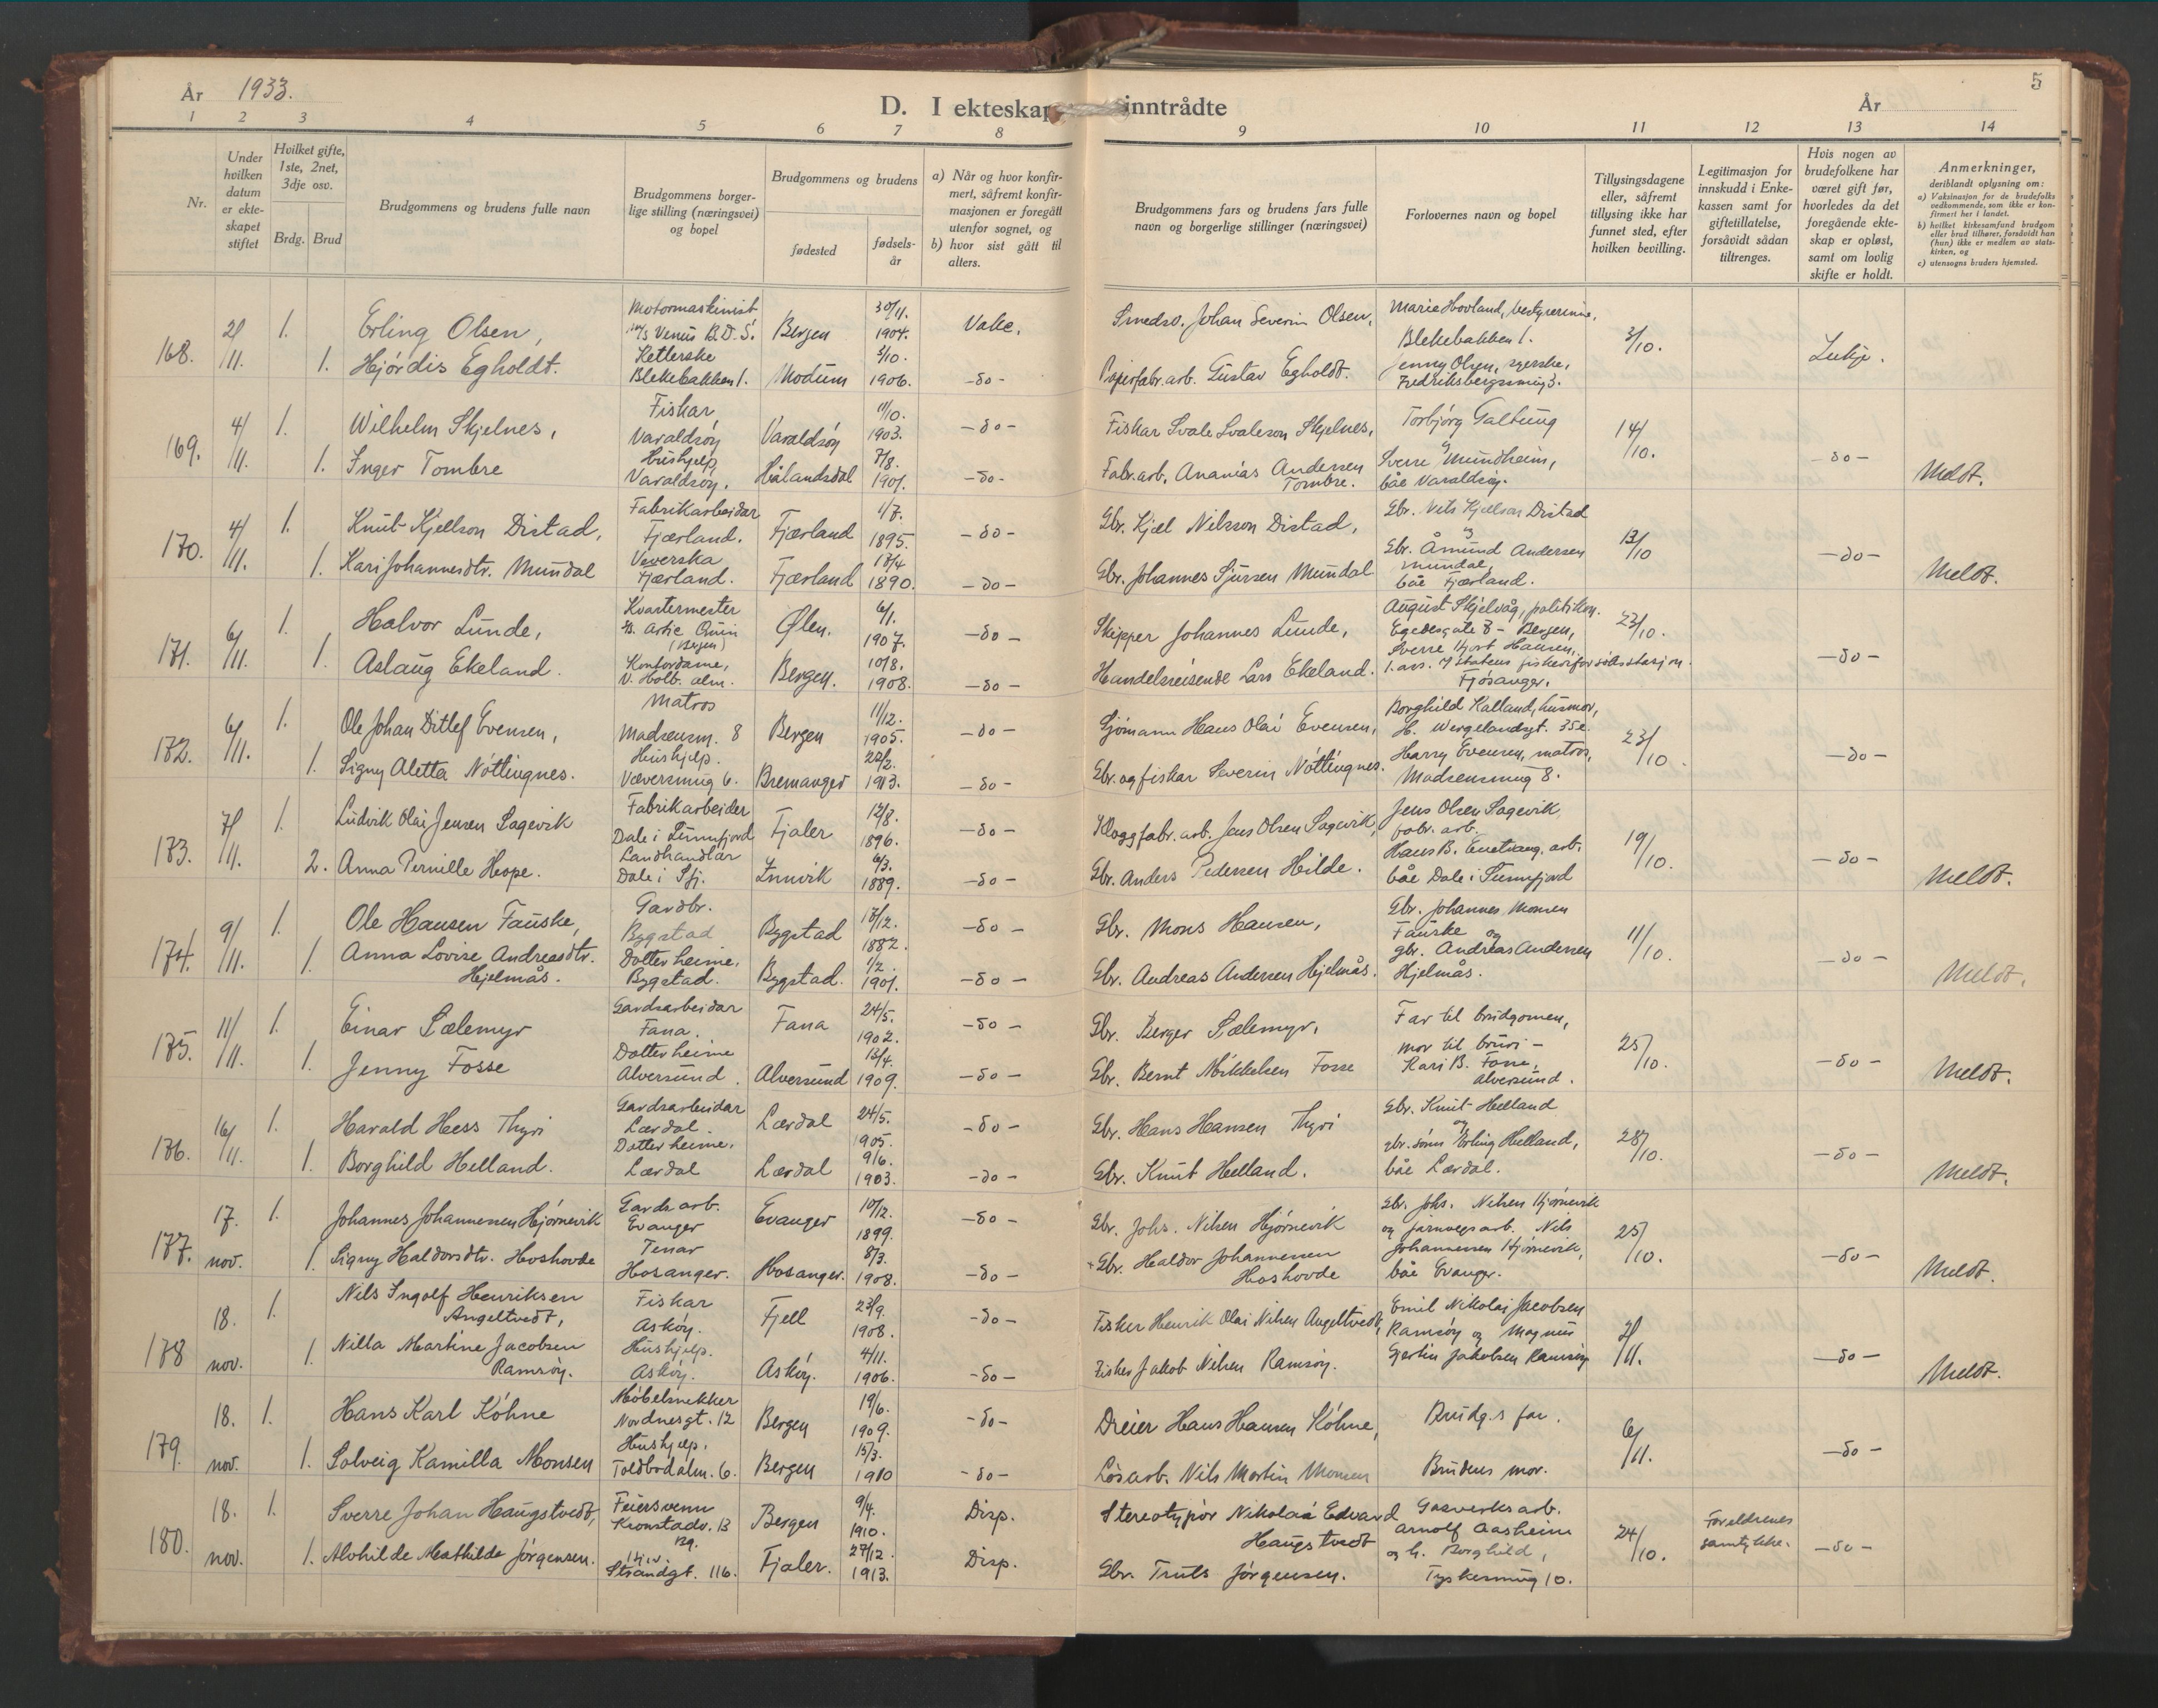 År 1933.
D. I ekteskap inntrådte
År
5
1 2 3 4 5 6 7 8 9 10 11 12 13 14
Nr.
Under hvilken datum er ekteskapet stiftet
Hvilket gifte, 1ste, 2net, 3dje osv.
Brdg. Brud
Brudgommens og brudens fulle navn
Brudgommens borgerlige stilling (næringsvei) og bopel
Brudgommens og brudens
fødested
fødselsår
a) Når og hvor konfirmert, såfremt konfirmasjonen er foregått utenfor sognet, og
b) hvor sist gått til alters.
Brudgommens fars og brudens fars fulle navn og borgerlige stillinger (næringsvei)
Forlovernes navn og bopel
Tillysingsdagene eller, såfremt tillysing ikke har funnet sted, efter hvilken bevilling.
Legitimasjon for innskudd i Enkekassen samt for giftetillatelse, forsåvidt sådan tiltrenges.
Hvis nogen av brudefolkene har været gift før, hvorledes da det foregående ekteskap er opløst, samt om lovlig skifte er holdt.
Anmerkninger, deriblandt oplysning om:
a) Vaksinasjon for de brudefolks vedkommende, som ikke er konfirmert her i landet.
b) hvilket kirkesamfund brudgom eller brud tilhører, forsåvidt han (hun) ikke er medlem av statskirken, og
c) utensogns bruders hjemsted.
168. 2/11. 1. Erling Olsen, Motormaskinist M/S Venus B.D.S. Bergen 30/11. 1904. Vake. Smedsv. Johan Severin Olsen, Marie Hovland, bestyrerinne, Blekebakken 1. 3/10.
1. Hjørdis Egholdt. Blekebakken 1. Modum 3/10. 1906. -do- Papirfabr.arb. Gustav Egholdt. Jenny Olsen, syerske, Fredriksbergsmug 3.
169. 4/11. 1. Wilhelm Skjelnes, Fiskar Varaldsøy Varaldsøy 11/10. 1903. -do- Fiskar Svale Svaleson Skjelnes, Torbjørg Galtung og 14/10. -do- Meldt.
1. Inger Tombre Hushjelp, Varaldsøy. Hålandsdal 7/8. 1901. -do- Fabr.arb. Ananias Andersen Tombre. Sverre Mundheim, båe Varaldsøy.
170. 4/11. 1. Knut Kjellson Distad, Fabrikarbeidar Fjærland. Fjærland 1/7. 1895. -do- Gbr. Kjel Nilsson Distad, Gbr. Nils Kjellson Distad og 13/10 -do- Meldt.
1. Kari Johannesdtr. Mundal Veverska Fjærland. Fjærland 13/4 1890. -do- Gbr. Johannes Sjursen Mundal Gbr. Åmund Andersen Mundal, båe Fjærland.
171. 6/11. 1. Halvor Lunde, Kvartermester (Bergen) Ølen. 6/1. 1907. -do- Skipper Johannes Lunde, August Skjelvåg, politikon. Egedesgate 8 - Bergen, 23/10. -do-
1. Aslaug Ekeland. Kontordame, V. Holb. alm. Bergen. 10/8. 1908. -do- Handelsreisende Lars Ekeland. Sverre Hjort Hansen, 1. ass. v/ Statens fiskeriforsøksstasjon Fjøsanger.
172. 6/11. 1. Ole Johan Ditlef Evensen, Matros Madsensm. 8 Bergen 11/12. 1905. -do- Sjømann Hans Olai Evensen, Borghild Kalland, husmor, H. Wergelandsgt. 35e. 23/10. -do-
1. Signy Aletta Nøttingnes. Hushjelp. Væversmug 6. Bremanger 22/2. 1913. -do- Gbr. og fiskar Severin Nøttingnes. Harry Evensen, matros, Madsensmug 8.
173. 7/11. 1. Ludvik Olai Jensen Sagevik Fabrikarbeider Dale i Sunnfjord Fjaler 12/8. 1896. -do- Jens Olsen Sagevik, Jens Olsen Sagevik fabr. arb. 19/10. -do- Meldt.
2. Anna Pernille Hope. Landhandlar Dale i Sfj. Innvik 6/3. 1889. -do- Gbr. Anders Pedersen Hilde. båe Dale i Sunnfjord
174. 9/11. 1. Ole Hansen Fauske, Gardbr. Bygstad Bygstad 17/12. 1882. -do- Gbr. Mons Hansen, Gbr. Johannes Monsen Fauske og 11/10. -do- Meldt.
1. Anna Lovise Andreasdtr. Hjelmås. Dotter heime, Bygstad. Bygstad. 1/2. 1901. -do- Gbr. Andreas Andersen Hjelmås. gbr. Andreas Andersen Hjelmås.
175. 11/11. 1. Einar Sælemyr Gardsarbeidar Fana. Fana 24/5. 1902. -do- Gbr. Berger Sælemyr, Far til brudgomen, 25/10. -do- Meldt.
1. Jenny Fosse Dotter heime Alversund. Alversund 13/4. 1909. -do- Gbr. Bernt Mikkelsen Fosse mor til bruri - Kari B. Fosse, Alversund.
176. 16/11. 1. Harald Hess Thyri Gardsarbeidar Lærdal. Lærdal 24/5. 1905. -do- Gbr. Hans Hansen Thyri Gbr. Knut Helland og 28/10. -do- Meldt.
1. Borghild Helland. Dotter heime. Lærdal Lærdal 9/6. 1903. -do- Gbr. Knut Helland. gbr. sønn Erling Helland, båe Lærdal.
177. 17. nov. 1. Johannes Johannessen Hjørnevik Gards arb. Evanger Evanger 10/12. 1899. -do- Gbr. Johs. Nilsen Hjørnevik Gbr. Johs. Nilsen Hjørnevik og jarnvegsarb. Nils 25/10. -do- Meldt.
1. Signy Haldorsdtr. Hoshovde Tenar Hosanger. Hosanger. 8/3. 1908. -do- Gbr. Haldor Johannessen Hoshovde Johannessen Hjørnevik, båe Evanger.
178 18. nov. 1. Nils Ingolf Henriksen Angeltvedt, Fiskar Askøy. Fjell 23/9. 1908. -do- Fisker Henrik Olai Nilsen Angeltvedt, Emil Nikolai Jacobsen Ramsøy og Magnus 2/11. -do- Meldt.
1. Nilla Martine Jacobsen Ramsøy. Hushjelp. Askøy. Askøy. 4/11. 1906. -do- Fisker Jakob Nilsen Ramsøy. Gerhin Jakobsen Ramsøy
179. 18. nov. 1. Hans Karl Köhne Møbelsnekker Nordnesgt. 12 Bergen 19/6. 1909. -do- Dreier Hans Hansen Köhne, Brudg.s far. 6/11. -do-
1. Solveig Kamilla Monsen Hushjelp. Toldbodalm. 6. Bergen 15/3. 1910 -do- Løsarb. Nils Martin Monsen Brudens mor.
180. 18. nov. 1. Sverre Johan Haugstvedt, Feiersvenn Kronstadv. 13 Bg. Bergen 9/4. 1910. Disp. Stereotypør Nikolai Edvard Haugstvedt Gasverksarb. Arnolf Aasheim 24/10. Foreldrenes samtykke. -do-
1. Alvhilde Mathilde Jørgensen. Strandgt. 116. Fjaler. 27/12. 1913. Disp. Gbr. Truls Jørgensen. og h. Borghild, Tyskesmug 10.